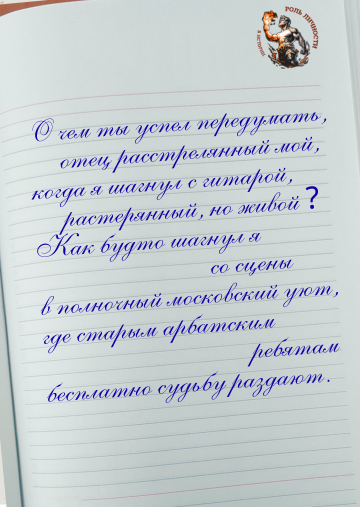 РОЛЬ ЛИЧНОСТИ
О чем ты успел передумать,
отец расстрелянный мой,
когда я шагнул с гитарой,
растерянный, но живой?
Как будто шагнул я
со сцены
в полночный московский уют,
где старым арбатским
ребятам
бесплатно судьбу раздают.